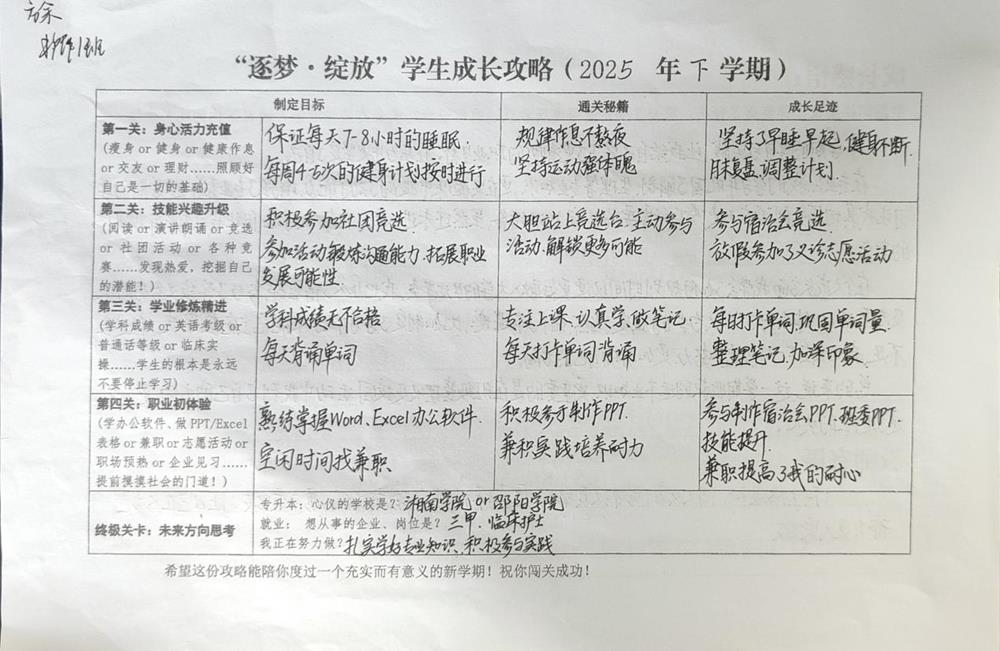 “逐梦·绽放”学生成长攻略（2025 年 下 学期）
制定目标 通关秘籍 成长足迹
第一关：身心活力充值
(瘦身 or 健身 or 健康作息
or 交友 or 理财……照顾好
自己是一切的基础)
保证每天7-8小时的睡眠.
每周4-5次的健身计划按时进行
规律作息不熬夜
坚持运动强体魄
坚持了早睡早起,健身不断.
月末复盘.调整计划.
第二关：技能兴趣升级
(阅读 or 演讲朗诵 or 竞选
or 社团活动 or 各种竞
赛……发现热爱，挖掘自己
的潜能！)
积极参加社团竞选
参加活动锻炼沟通能力.拓展职业
发展可能性
大胆站上竞选台.主动参与
活动.解锁更多可能
参与宿治会竞选
放假参加了义诊志愿活动
第三关：学业修炼精进
(学科成绩 or 英语考级 or
普通话等级 or 临床实
操……学生的根本是永远
不要停止学习)
学科成绩无不合格
每天背诵单词
专注上课.认真学.做笔记
每天打卡单词背诵
每日打卡单词.巩固单词量.
整理笔记.加深印象.
第四关：职业初体验
(学办公软件、做 PPT/Excel
表格 or 兼职 or 志愿活动 or
职场预热 or 企业见习……
提前摸摸社会的门道！)
熟练掌握Word、Excel办公软件.
空闲时间找兼职
积极参与制作PPT.
兼积实践培养耐力
参与制作宿治会PPT.班委PPT.
技能提升
兼职提高了我的耐心
终极关卡：未来方向思考
专升本：心仪的学校是？湘南学院 or 邵阳学院
就业： 想从事的企业、岗位是？三甲.临床护士
我正在努力做？扎实学好专业知识.积极参与实践
希望这份攻略能陪你度过一个充实而有意义的新学期！祝你闯关成功！